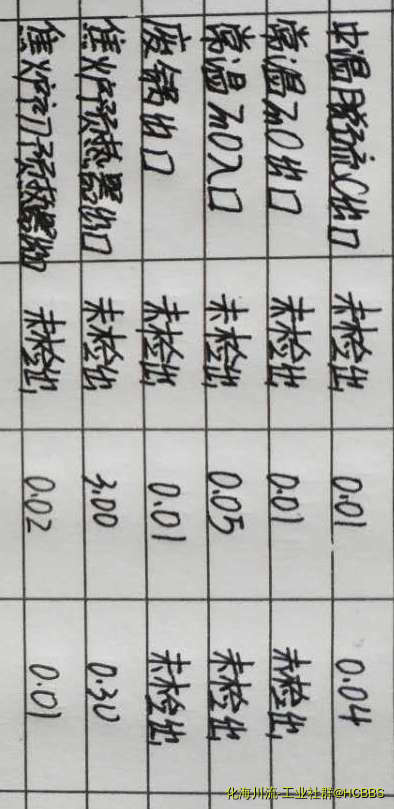 中温脱硫C出口 未检出 0.01 0.04
常温ZnO出口 未检出 0.01 未检出
常温ZnO入口 未检出 0.05 未检出
废锅出口 未检出 0.01 未检出
焦炉预热器出口 未检出 3.00 0.30
焦炉 预热器出口 未检出 0.02 0.01
化海川流-工业社群@HCBBS